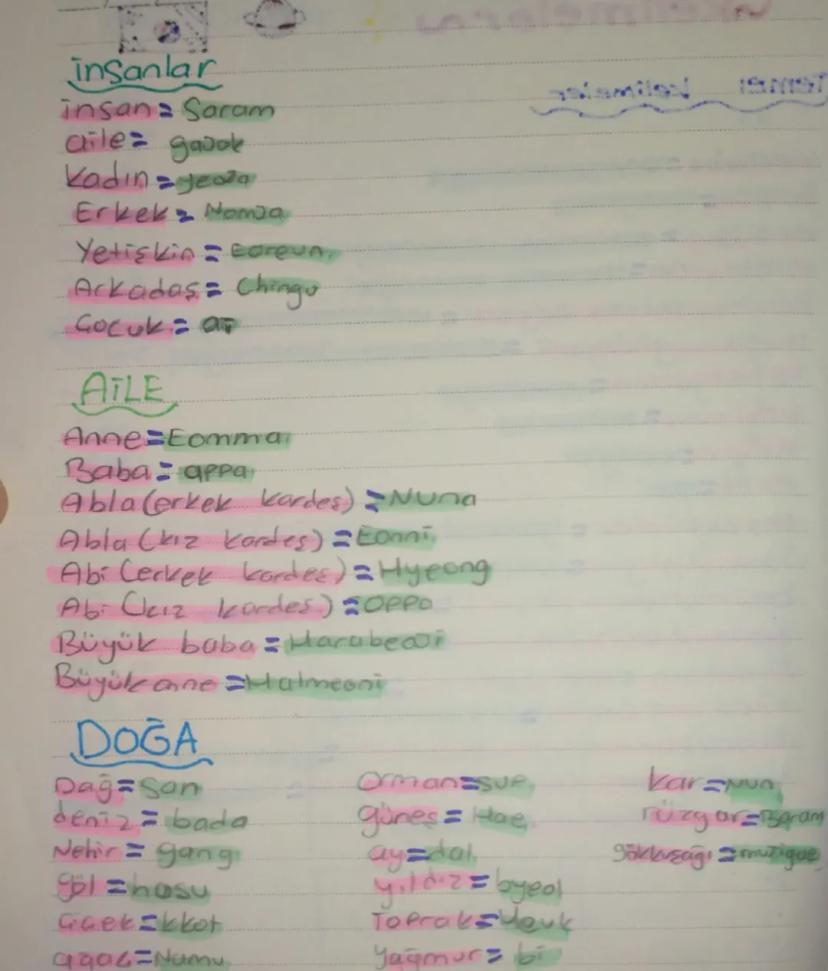 insanlar
insan = Saram
aile = gajok
Kadın = yeoja
Erkek = Namja
Yetişkin = Eoreun
Arkadaş = Chingu
Çocuk = ai
AİLE
Anne = Eomma
Baba = appa
Abla (erkek kardeş) = Nuna
Abla (kız kardeş) = Eonni
Abi (erkek kardeş) = Hyeong
Abi (kız kardeş) = Oppa
Büyük baba = Harabeoji
Büyük anne = Halmeoni
DOĞA
Dağ = San
deniz = bada
Nehir = gang
göl = hosu
Çiçek = kkot
ağaç = Namu
Orman = sup
güneş = Hae
ay = dal
yıldız = byeol
Toprak = Heuk
yağmur = bi
kar = Nun
rüzgar = Baram
gökkuşağı =